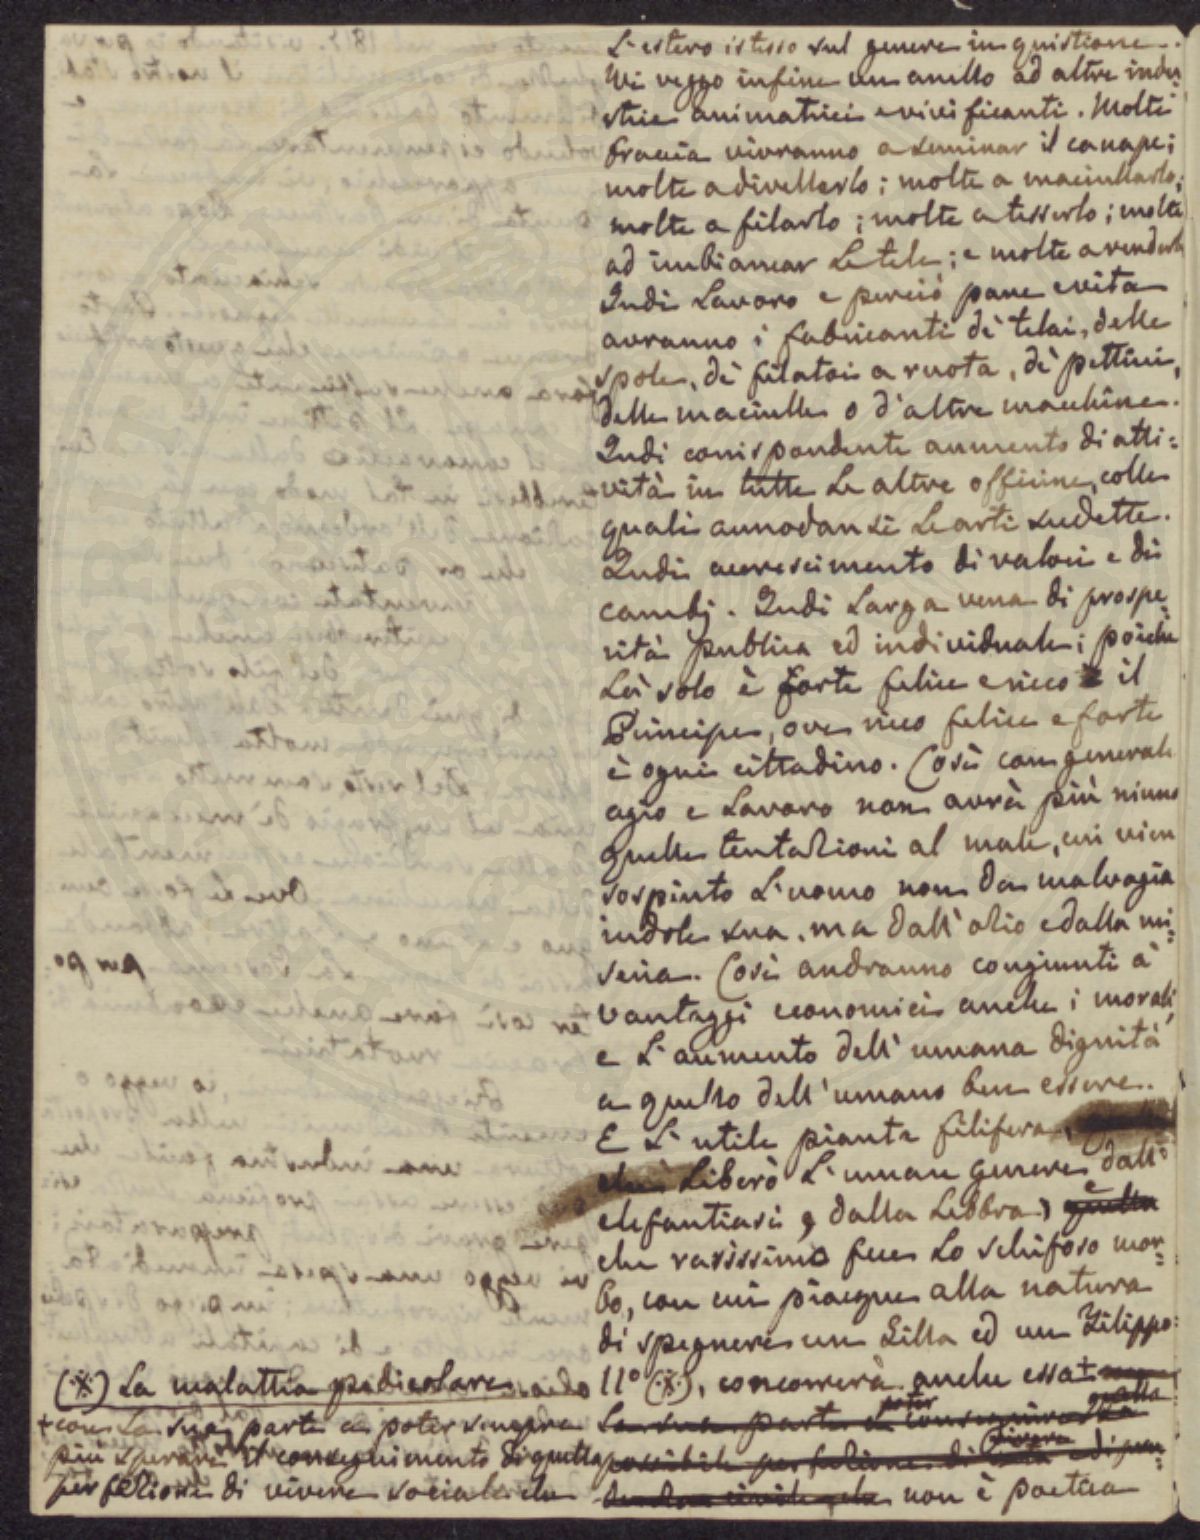 L'estero istesso sul genere in quistione.
Vi veggo infine un anello ad altre indu=
strie animatrici e vivificanti. Molte
braccia vivranno a seminar il canape;
molte a divellerlo; molte a maciullarlo;
molte a filarlo; molte a tesserlo; molte
ad imbiancar le tele; e molte a venderle
Indi lavoro e perciò pane e vita
avranno i fabricanti di telai, delle
spole, di filatoi a ruota, di pettini,
delle maciulle o d'altre macchine.
Indi corrispondente aumento di atti=
vità in tutte le altre officine, colle
quali annodansi le arti sudette.
Indi accrescimento di valori e di
cambj. Indi larga vena di prospe=
rità publica ed individuale; poichè
Lì solo è forte felice e ricco il
Principe, ove ricco felice e forte
è ogni cittadino. Così con generale
agio e lavoro non avrà più niuno
quelle tentazioni al male, cui vien
sospinto l'uomo non da malvagia
indole sua, ma dall'ozio e dalla mi=
seria. Così andranno congiunti a'
vantaggi economici anche i morali,
e l'aumento dell'umana dignità
a quello dell'umano ben essere.
E l'utile pianta filifera,
che liberò l'uman genere dall'
elefantiasi e dalla lebbra, quella
che rarissimo fece lo schifoso mor=
bo, con cui piacque alla natura
di spegnere un Silla ed un Filippo
IIº (※), concorrerà anche essa +
la sua parte a poter conseguire quella
possibile perfezione di vivere
civile, che non è poetica
(※) La malattia pedicolare
+ con la sua parte a poter sempre
più sperare il conseguimento di quella
perfezione di vivere sociale che